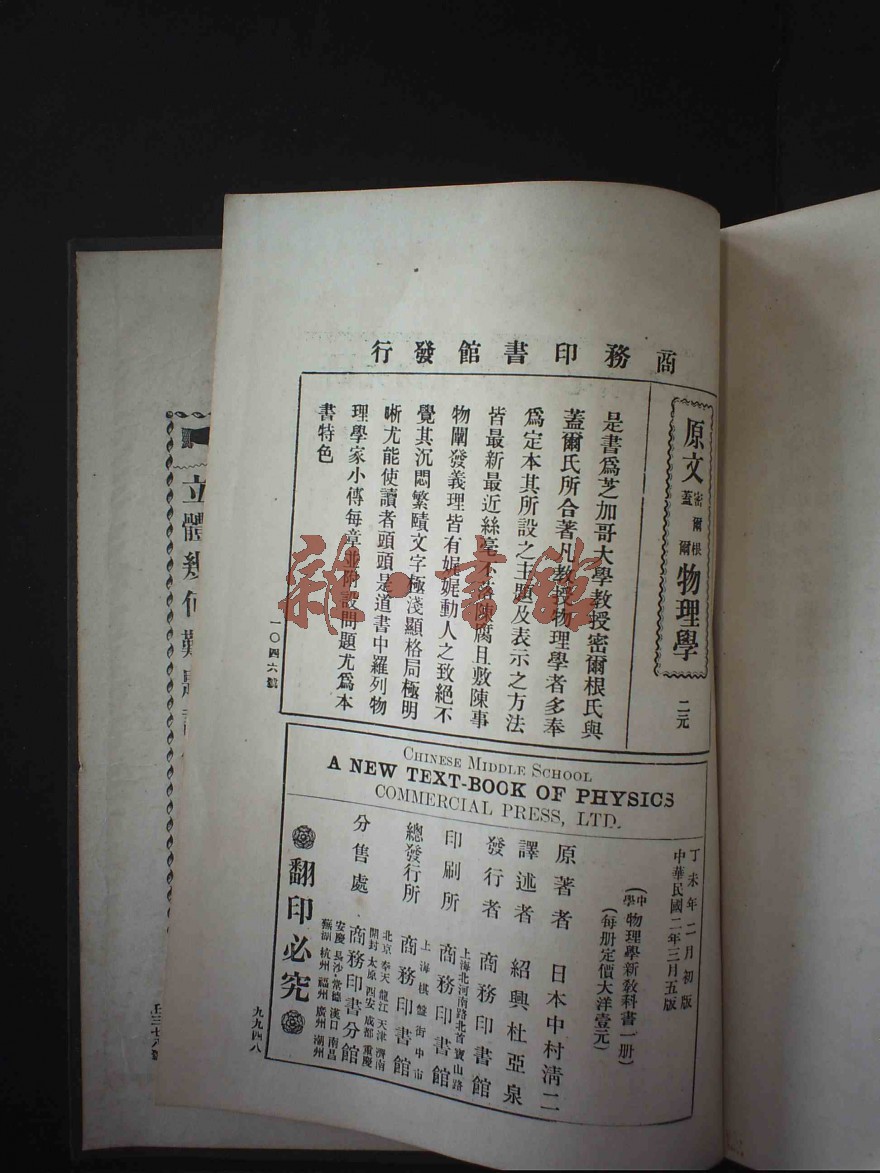 商務印書館發行
原文密爾根蓋爾物理學
二元
是書爲芝加哥大學教授密爾根氏與
蓋爾氏所合著凡教授物理學者多奉
爲定本其所設之主題及表示之方法
皆最新最近絲毫不落陳腐且敷陳事
物闡發義理皆有娓娓動人之致絕不
覺其沉悶繁賾文字極淺顯格局極明
晰尤能使讀者頭頭是道書中羅列物
理學家小傳每章並附設問題尤爲本
書特色
一〇四六號
CHINESE MIDDLE SCHOOL
A NEW TEXT-BOOK OF PHYSICS
COMMERCIAL PRESS, LTD.
丁未年二月初版
中華民國二年三月五版
(中學物理學新教科書一册)
(每册定價大洋壹元)
原著者 日本中村淸二
譯述者 紹興杜亞泉
發行者 商務印書館
上海北河南路北首寶山路
印刷所 商務印書館
上海棋盤街中市
總發行所 商務印書館
北京 奉天 龍江 天津 濟南
開封 太原 西安 成都 重慶
分售處 商務印書分館
安慶 長沙 常德 漢口 南昌
蕪湖 杭州 福州 廣州 潮州
翻印必究
九九四八
立體幾何
雜·書館